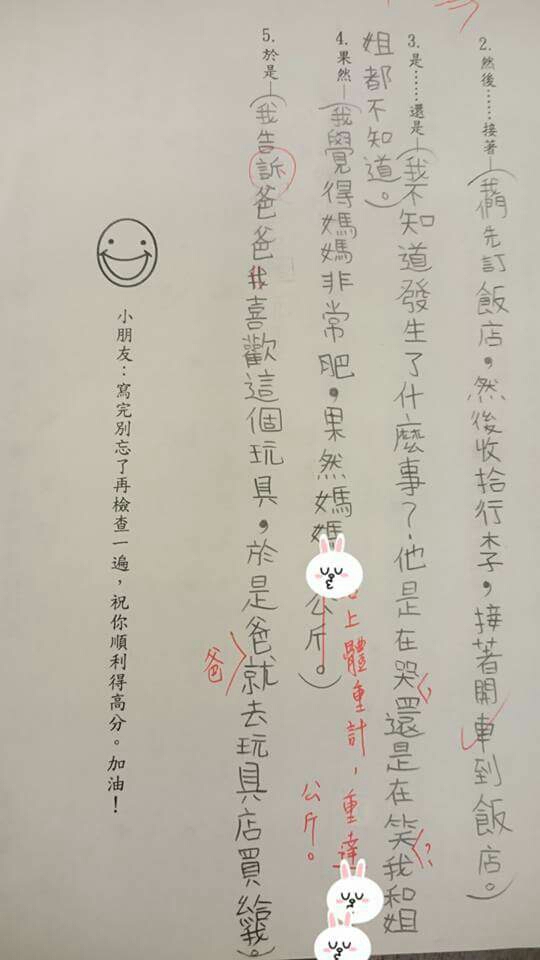 2.然後……接著—(我們先訂飯店，然後收拾行李，接著開車到飯店。)
3.是……還是—(我不知道發生了什麼事？他是在哭還是在笑我和姐
姐都不知道。)
4.果然—(我覺得媽媽非常肥，果然媽媽公斤。)
上體重計，重達
公斤。
5.於是—(我告訴爸爸我喜歡這個玩具，於是爸就去玩具店買給我。)
爸
小朋友：寫完別忘了再檢查一遍，祝你順利得高分。加油！